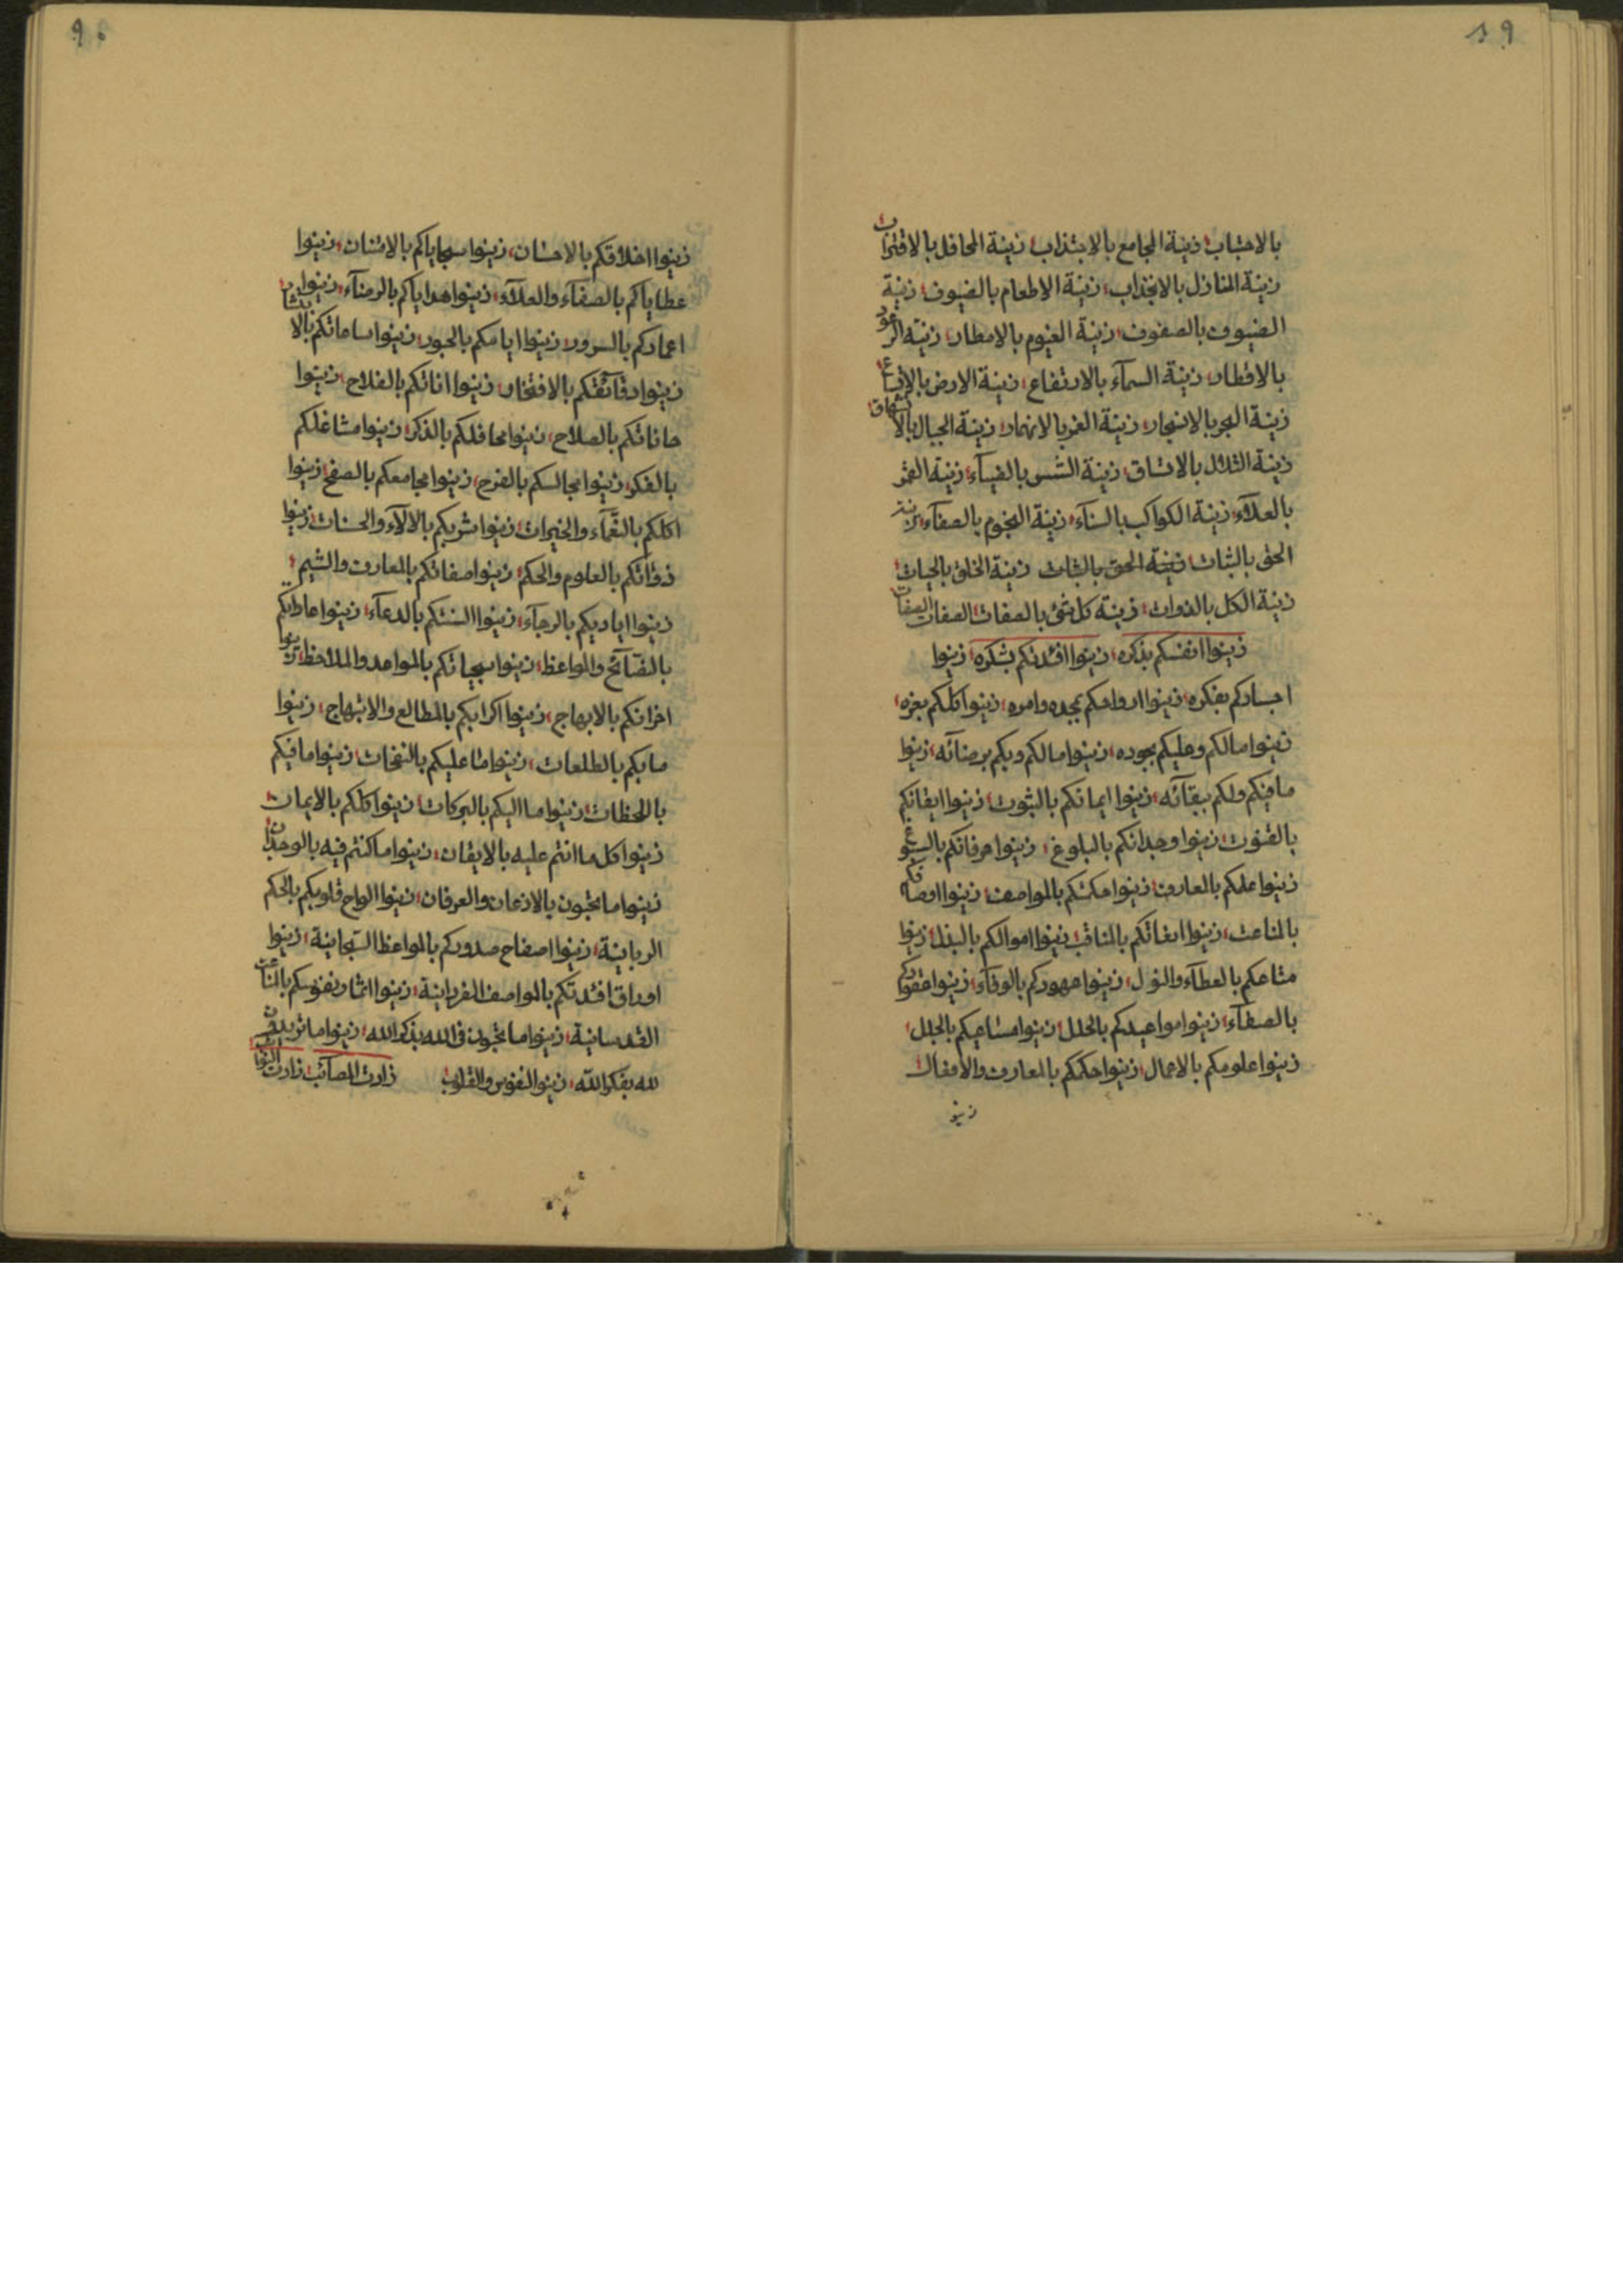 ٩١
بالاحتباب زينة المجامع بالاجتذاب زينة المحافل بالاقتران
زينة المنازل بالانجذاب زينة الاطعام بالضيوف زينة
الضيوف بالصفوف زينة الغيوم بالامطار زينة الرعود
بالاقطار زينة السمآء بالارتفاع زينة الارض بالاتباع
زينة البحر بالانجار زينة النهر بالانهمار زينة الجبال بالا
زينة التلال بالاتساق زينة الشمس بالضيآء زينة القمر
بالعلآء زينة الكواكب بالسنآء زينة النجوم بالصفآء زينة
الحق بالثبات زينة الحق بالثبات زينة الخلق بالحيات
زينة الكل بالذوات زينة كل شئ بالصفات الصفات الصفات
زينوا انفسكم بذكره زينوا افئدتكم بشكره زينوا
اجسادكم بفكره زينوا ارواحكم بمجده وامره زينوا كلكم بعزه
زينوا مالكم وعليكم بجوده زينوا مالكم وبكم برضآئه زينوا
مافيكم ولكم ببقآئه زينوا ايمانكم بالثبوت زينوا ايقانكم
بالقنوت زينوا وجدانكم بالبلوغ زينوا عرفانكم بالسبوغ
زينوا علمكم بالعارف زينوا حكمتكم بالمواصف زينوا اوصافكم
بالمناعت زينوا اتكم بالمناقب زينوا اموالكم بالبذل زينوا
متاعكم بالعطآء والنزل زينوا عهودكم بالوفآء زينوا عقودكم
بالصفآء زينوا مواعيدكم بالحلل زينوا مساعيكم بالجلل
زينوا علومكم بالاعمال زينوا حكمكم بالمعارف والافعال
زينو
٩٠
زينوا اخلاقكم بالاحسان زينوا سجاياكم بالامتنان زينوا
عطاياكم بالصفآء والعلآء زينوا هداياكم بالرضآء زينوا
اعماركم بالسرور زينوا ايامكم بالحبور زينوا ساعاتكم بالا
زينوا دقآئقكم بالافتخار زينوا اناتكم بالفلاح زينوا
حاناتكم بالصلاح زينوا محافلكم بالذكر زينوا مشاغلكم
بالفكر زينوا مجالسكم بالفرح زينوا مجامعكم بالصفح زينوا
اكلكم بالنعمآء والخيرات زينوا شربكم بالالآء والحسنات زينوا
ذواتكم بالعلوم والحكم زينوا صفاتكم بالمعارف والشيم
زينوا اياديكم بالرجآء زينوا السنتكم بالدعآء زينوا عاداتكم
بالنصآئح والمواعظ زينوا سجياتكم بالمواعد والملاحظ زينوا
احزانكم بالابهاج زينوا اكرابكم بالمطالع والابتهاج زينوا
مابكم بالطلعات زينوا ما عليكم بالنفحات زينوا مافيكم
باللحظات زينوا ما اليكم بالبركات زينوا كلكم بالايمان
زينوا كل ما انتم عليه بالايقان زينوا ما كنتم فيه بالوجدان
زينوا ما تحبون بالاذعان والعرفان زينوا الواح قلوبكم بالحكم
الربانية زينوا اصفاح صدوركم بالمواعظ السبحانية زينوا
اوراق افئدتكم بالمواصف الفردانية زينوا اثمار نفوسكم بالمناعت
القدسانية زينوا ما تحبون فى الله بذكر الله زينوا ما تريدون
لله بفكر الله زينوا النفوس والقلوب زادت المصآئب زادت النوآئب